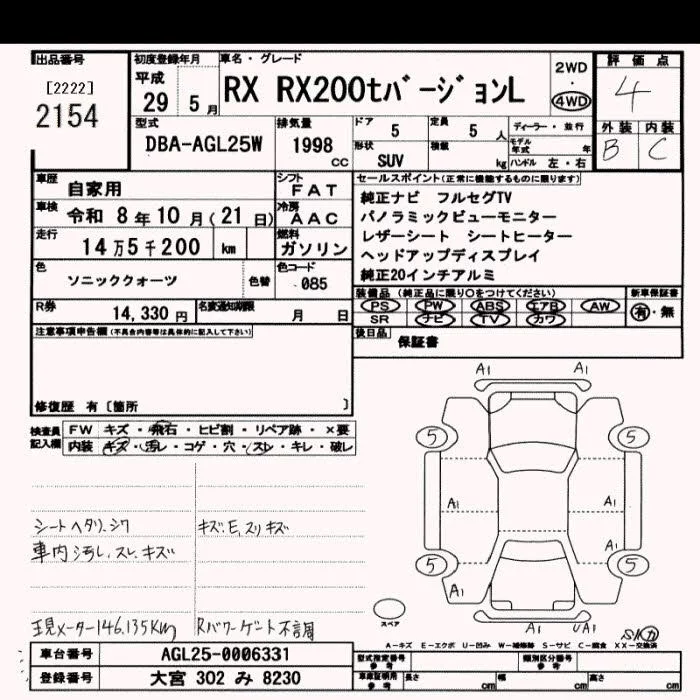 出品番号
[2222]
2154
初度登録年月
平成
29 5月
車名・グレード
RX RX200tバージョンL
2WD
・
4WD
評価点
4
外装 内装
B C
型式
DBA-AGL25W
排気量
1998
cc
ドア
5
定員
5人
形状
SUV
積載
kg
ディーラー・並行
モデル年式 年
ハンドル 左・右
車歴
自家用
シフト
FAT
車検
令和 8年10月(21日)
冷房
AAC
走行
14万5千200 km
燃料
ガソリン
色
ソニッククォーツ
色替
色コード
085
R券
14,330円
名変通知期限
月 日
セールスポイント(正常に機能するものに限ります)
純正ナビ フルセグTV
パノラミックビューモニター
レザーシート シートヒーター
ヘッドアップディスプレイ
純正20インチアルミ
装備品 (純正品に限り○をつけてください)
PS PW ABS エアB AW
SR ナビ TV カワ
新車保証書
有・無
後日品
保証書
注意事項申告欄(不具合内容等は具体的に記入して下さい)
修復歴 有〔箇所 〕
検査員記入欄
FW キズ・飛石・ヒビ割・リペア跡・×要
内装 キズ・汚レ・コゲ・穴・スレ・キレ・破レ
シートヘタリ.シワ
車内汚レ.スレ.キズ
キズ.E.スリキズ
現メーター146.135Km
Rパワーゲート不調
A1 A1
5 5
A1 A1
A1
5 5
A1
A1 UA1
スペア
A-キズ E-エクボ U-凹み W-補修跡 S-サビ C-腐食 XX-交換済
車台番号
AGL25-0006331
登録番号
大宮 302 み 8230
型式指定番号
参考
類別区分番号
参考
車庫証明用
参考
長さ cm 幅 cm 高さ cm